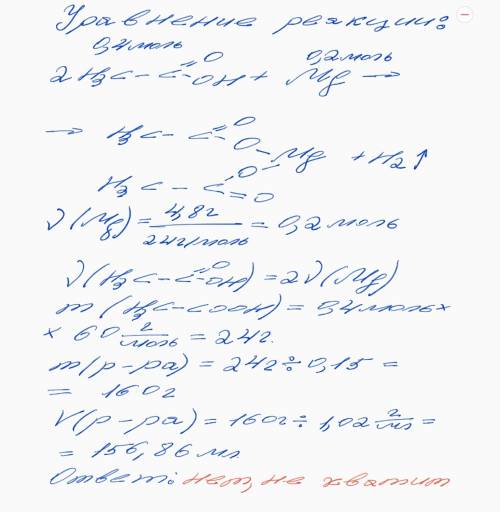 Уравнение реакции:
0,4моль 0,2моль
2H3C-C=O-OH + Mg →
→ H3C-C=O-O-Mg + H2↑
H3C-C-O=O
ν(Mg) = 4,8г/24г/моль = 0,2моль
ν(H3C-C=O-OH) = 2ν(Mg)
m(H3C-COOH) = 0,4моль×
× 60 г/моль = 24г.
m(р-ра) = 24г ÷ 0,15 =
= 160г
V(р-ра) = 160г ÷ 1,02 г/мл =
= 156,86 мл
Ответ: нет, не хватит